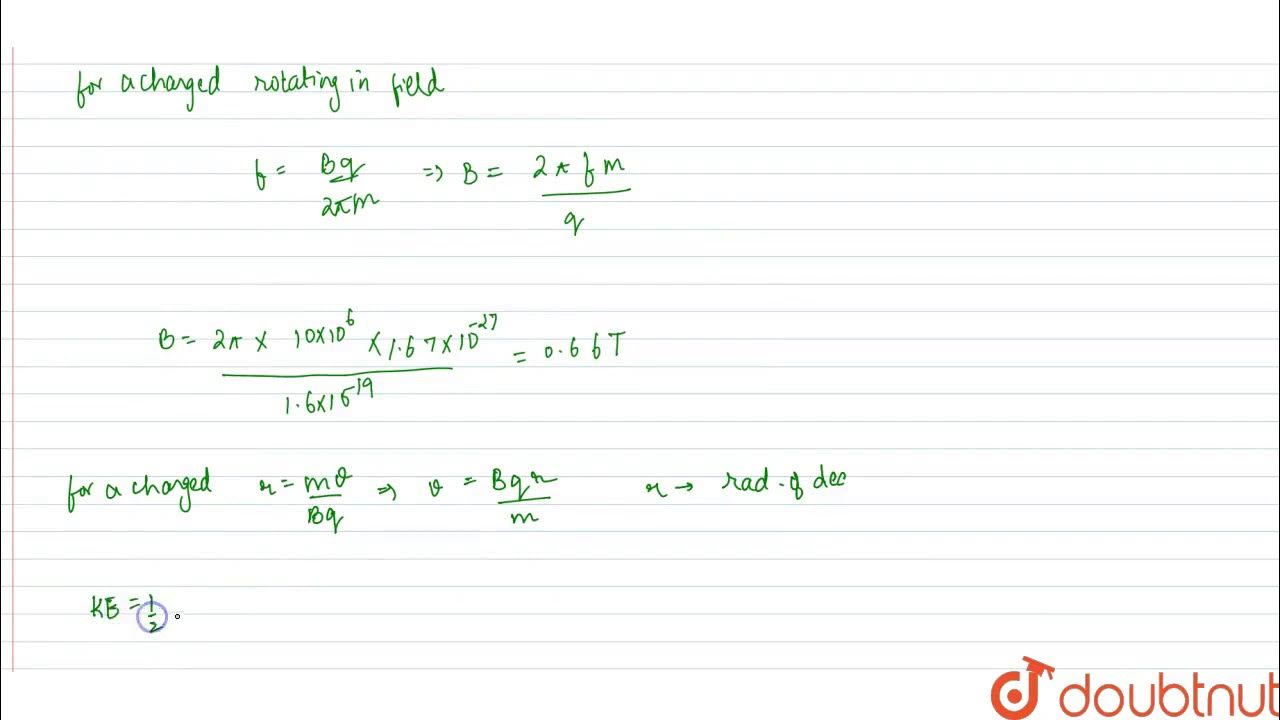 for a charged rotating in field
f = Bq/2πm ⇒ B = 2π f m/q
B = 2π × 10×10⁶ × 1.67×10⁻²⁷/1.6×10⁻¹⁹ = 0.66T
for a charged r = mv/Bq ⇒ v = Bqr/m r → rad. of dee
KE = 1/2
doubtnut